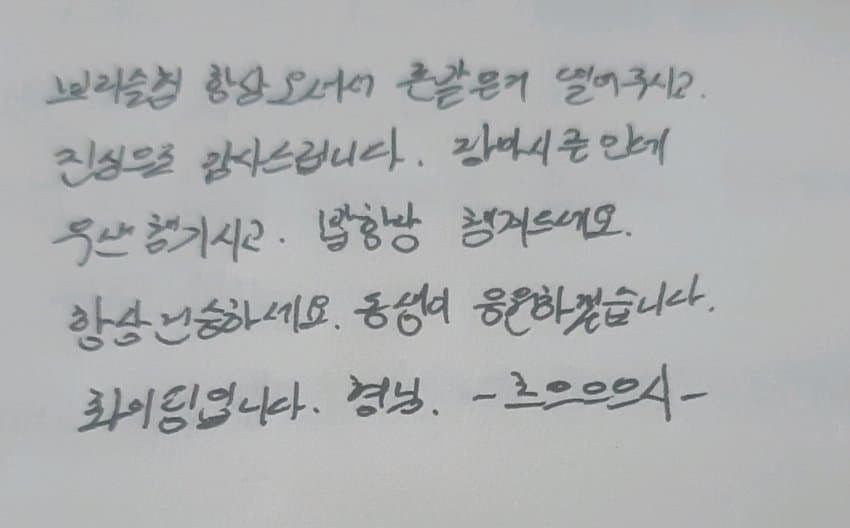 브리슬컵 항상 오셔서 콘같은거 떨어주시고.
진심으로 감사스럽니다. 장마시즌인데
우산챙기시고. 밥항상 챙겨드세요.
항상건승하세요. 동생이 응원하겠습니다.
화이팅입니다. 형님. -르으으으시-